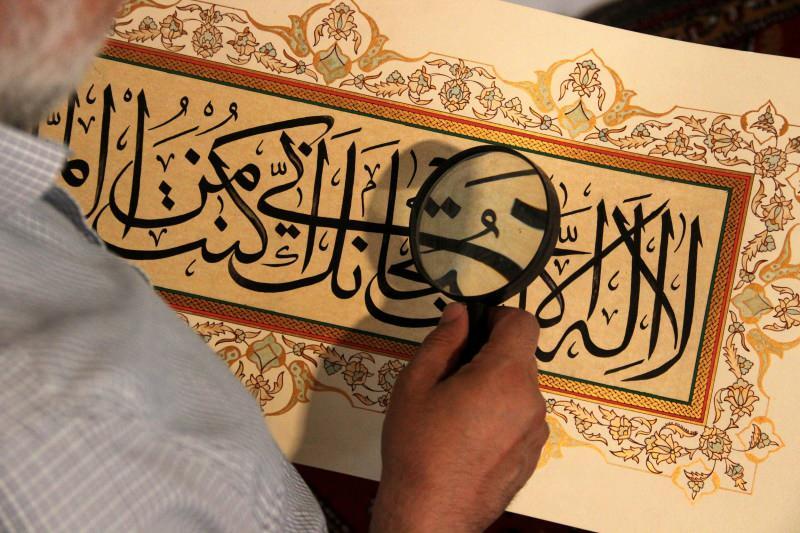 لا اله الا انت سبحانك إنّي كنت من